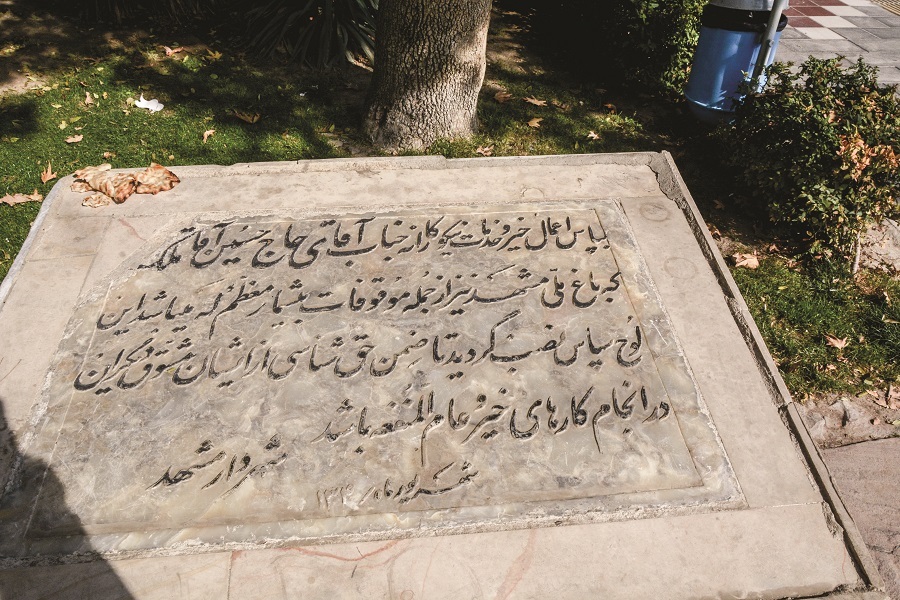 بپاس اعمال خیر و خدمات نیکوکارانه جناب آقای حاج حسین آقا ملک
که باغ ملی مشهد نیز از جمله موقوفات بیشمار معظم له میباشد این
لوح سپاس نصب گردید تا ضمن حق شناسی از ایشان مشوق دیگران
در انجام کارهای خیر و عام المنفعه باشد
شهریور ماه
شهردار مشهد